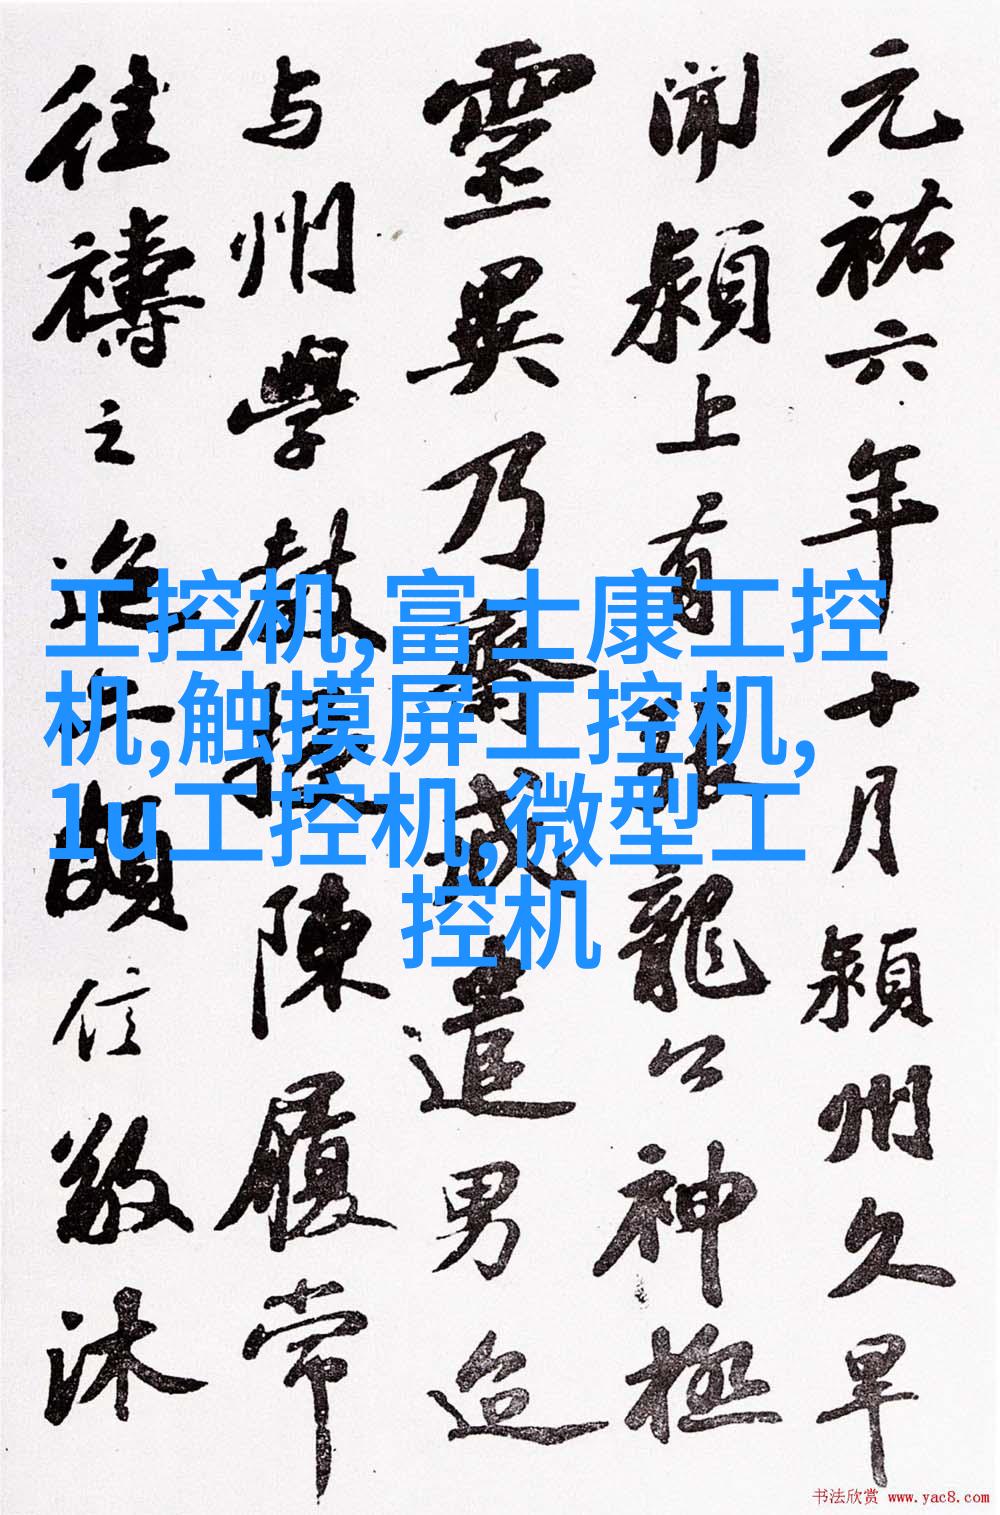 元祐六年十月潁州久旱
聞潁上有張龍公神極
靈異乃齋戒遣男迨
与州學教授陳履常
往禱之迨亦頗信敬沐
工控机,富士康工控
机,触摸屏工控机,
1u工控机,微型工
控机
书法欣赏 www.yac8.com